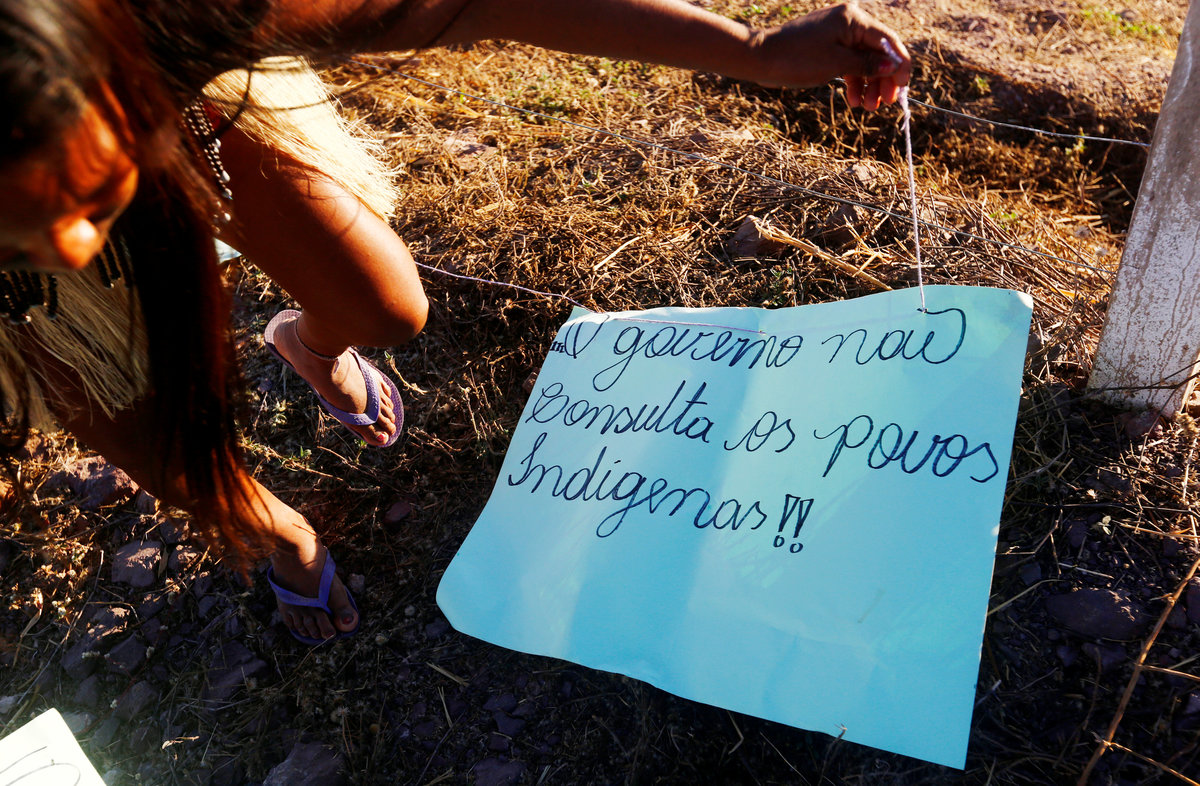 ...O governo não
Consulta os povos
Indígenas!!